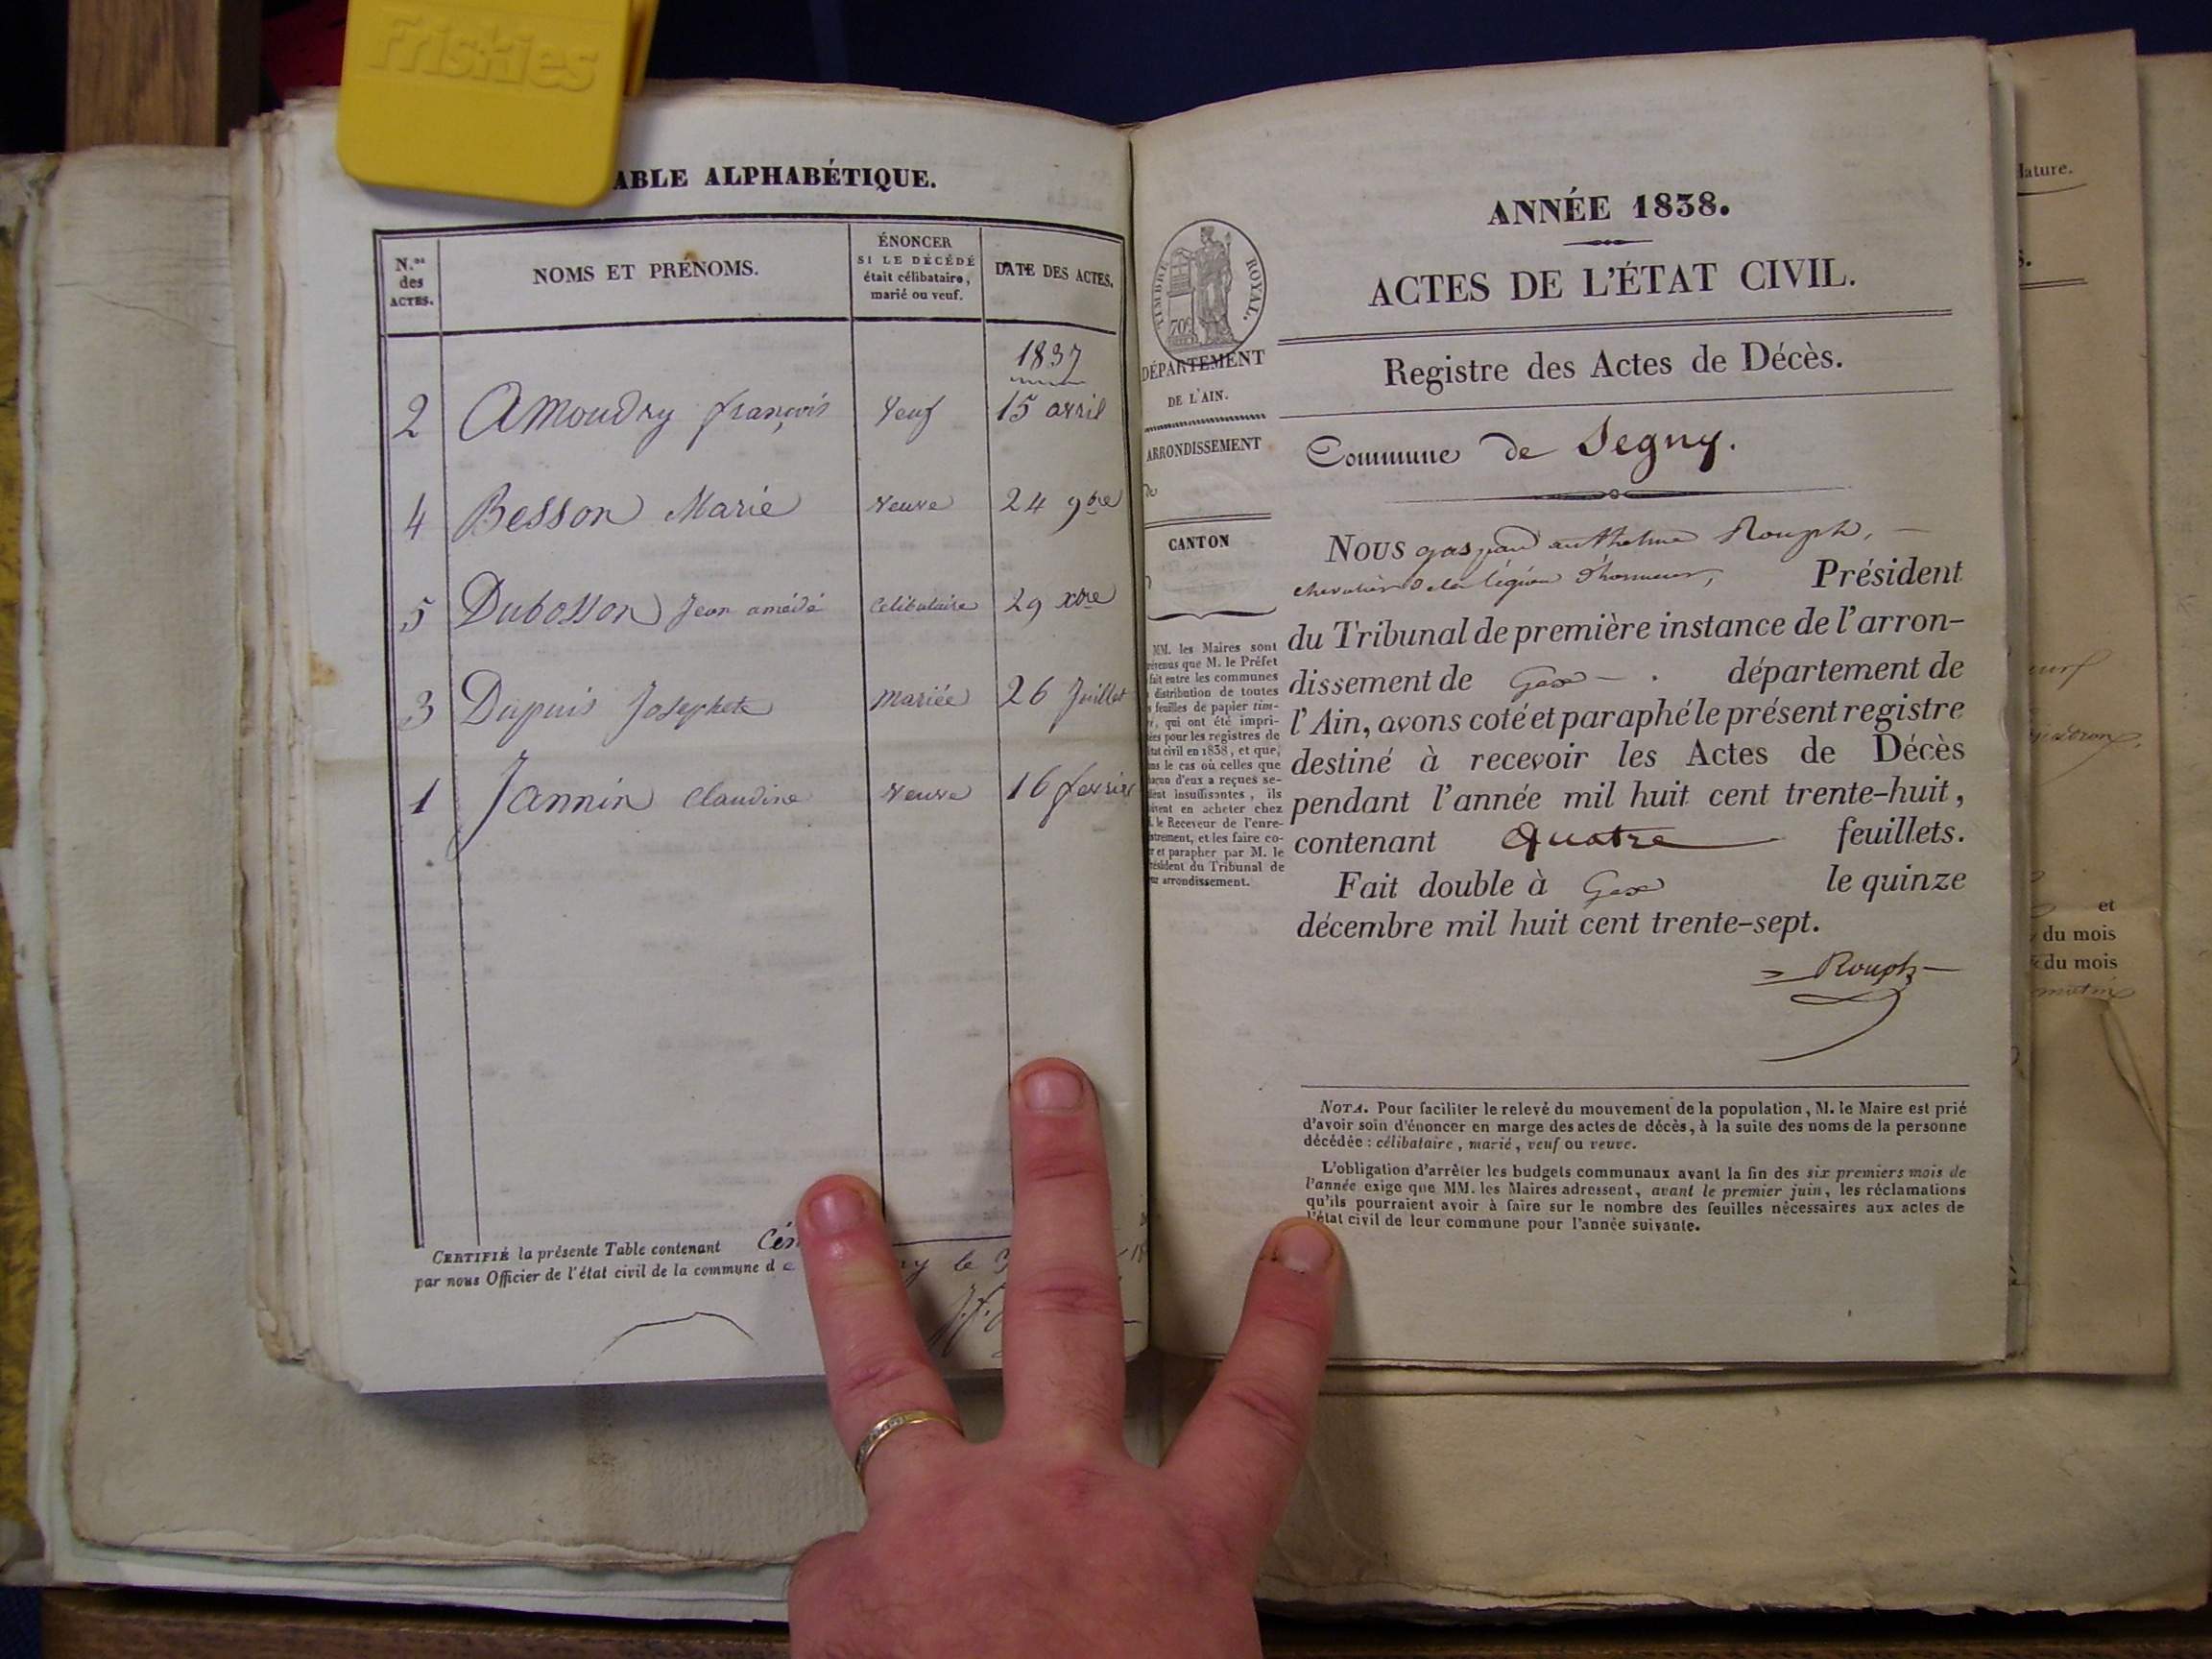 Friskies
ABLE ALPHABÉTIQUE.
N.os des ACTES.
NOMS ET PRÉNOMS.
ÉNONCER
SI LE DÉCÉDÉ
était célibataire,
marié ou veuf.
DATE DES ACTES.
1837
2 Amoudry françois Veuf 15 avril
4 Besson Marie veuve 24 9bre
5 Dubosson Jean amédé Celibataire 29 xbre
3 Dupuis Josephete mariée 26 Juillet
1 Jannin Claudine veuve 16 fevrier
CERTIFIÉ la présente Table contenant
par nous Officier de l'état civil de la commune d e
le
ANNÉE 1838.
ACTES DE L'ÉTAT CIVIL.
TIMBRE ROYAL.
70c
DÉPARTEMENT
DE L'AIN.
ARRONDISSEMENT
de
CANTON
MM. les Maires sont
prévenus que M. le Préfet
fait entre les communes
distribution de toutes
feuilles de papier tim-
, qui ont été impri-
ées pour les registres de
état civil en 1838, et que,
ns le cas où celles que
acun d'eux a reçues se-
ient insuffisantes, ils
ivent en acheter chez
. le Receveur de l'enre-
strement, et les faire co-
r et parapher par M. le
résident du Tribunal de
ur arrondissement.
Registre des Actes de Décès.
Commune de Segny.
NOUS gaspard anthelme Rouph,
chevalier de la légion d'honneur, Président
du Tribunal de première instance de l'arron-
dissement de Gex département de
l'Ain, avons coté et paraphé le présent registre
destiné à recevoir les Actes de Décès
pendant l'année mil huit cent trente-huit,
contenant quatre feuillets.
Fait double à Gex le quinze
décembre mil huit cent trente-sept.
Rouph
NOTA. Pour faciliter le relevé du mouvement de la population, M. le Maire est prié
d'avoir soin d'énoncer en marge des actes de décès, à la suite des noms de la personne
décédée : célibataire, marié, veuf ou veuve.
L'obligation d'arrêter les budgets communaux avant la fin des six premiers mois de
l'année exige que MM. les Maires adressent, avant le premier juin, les réclamations
qu'ils pourraient avoir à faire sur le nombre des feuilles nécessaires aux actes de
l'état civil de leur commune pour l'année suivante.
et
du mois
du mois